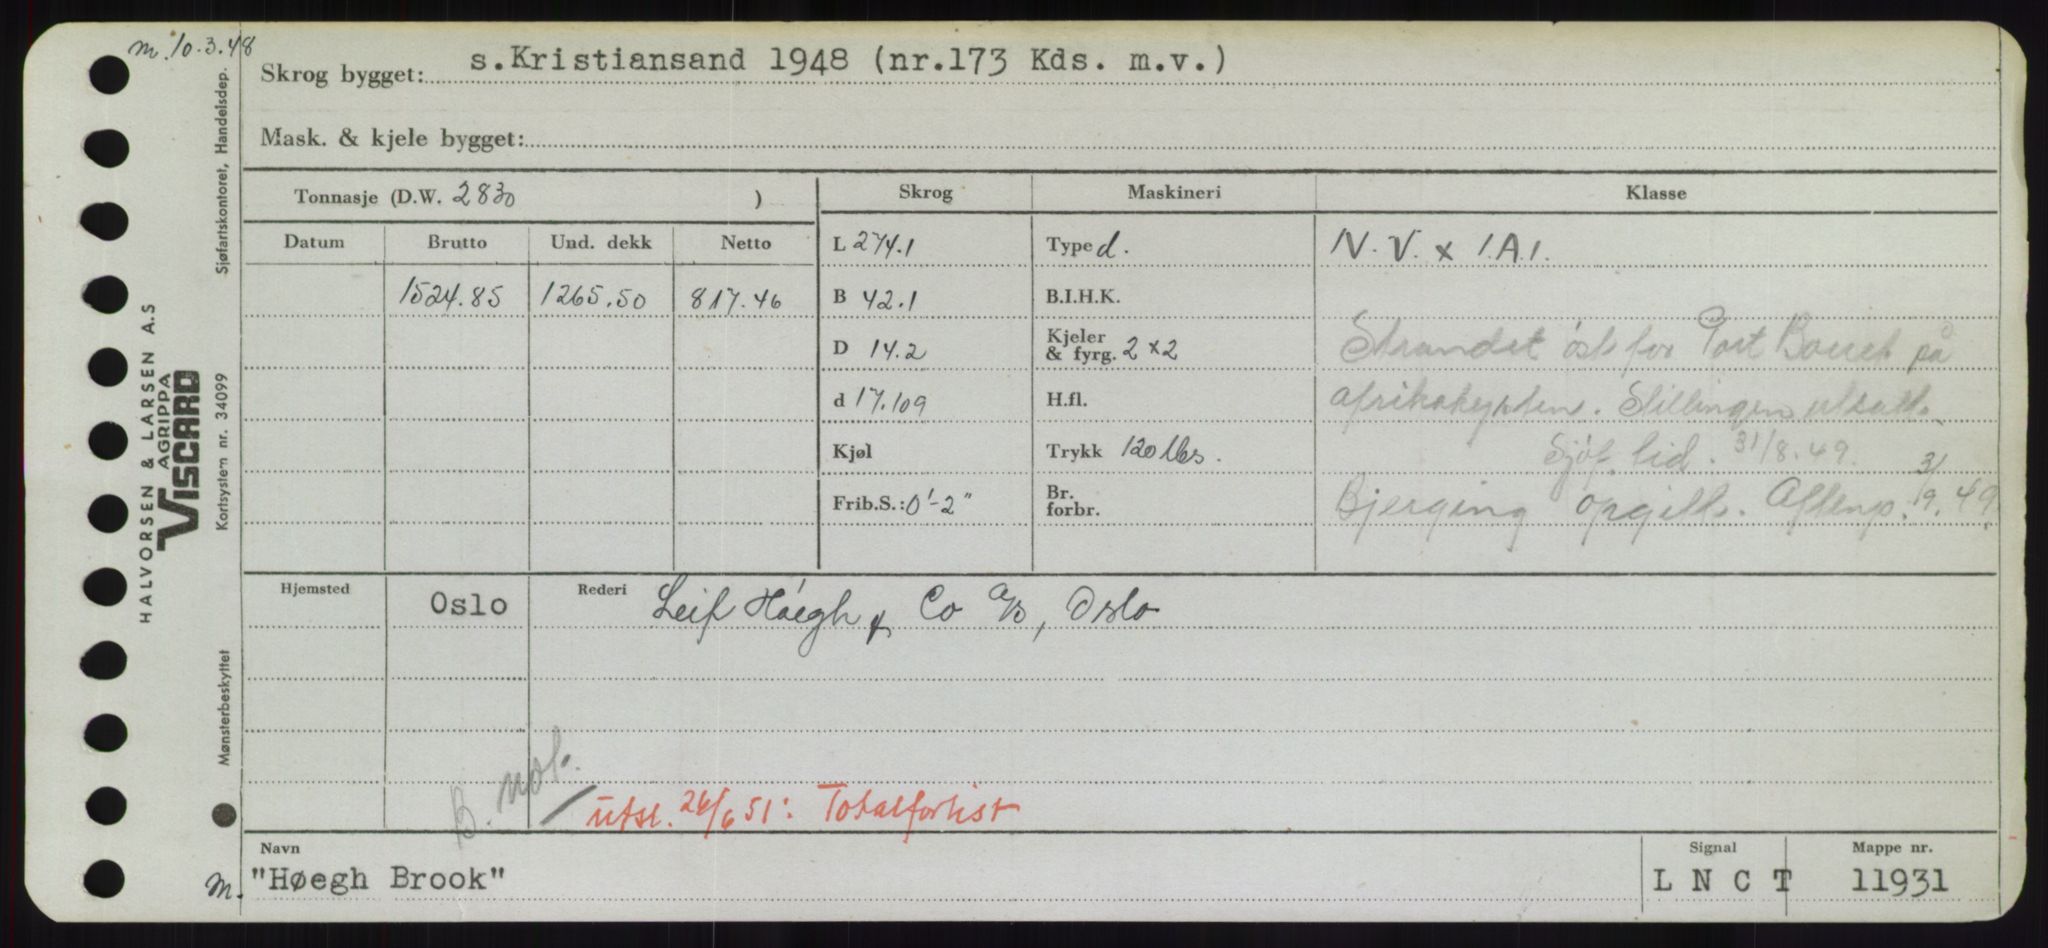 m. 10.3.48
Skrog bygget: s.Kristiansand 1948 (nr.173 Kds. m.v.)
Mask. & kjele bygget:
Tonnasje (D.W. 2830 )
Skrog Maskineri Klasse
Datum Brutto Und. dekk Netto
L 274.1 Type d. N.V. x 1.A.1.
1524.85 1265.50 817.46
B 42.1 B.I.H.K.
D 14.2 Kjeler & fyrg. 2x2 Strandet øst for Port på
d 17.109 H.fl. afrikakysten. Stillingen utsatt.
Kjøl Trykk 120 lbs. Sjøf. tid. 31/8.49.
Frib.S.: 0'-2" Br. forbr. Bjerging opgitt. Aftenp. 3/9.49.
Hjemsted Oslo Rederi Leif Höegh & Co a/s, Oslo
B. not.
utsl. 26/6 51: Totalforlist
Navn Signal Mappe nr.
m. "Høegh Brook" L N C T 11931
Sjøfartskontoret, Handelsdep.
Kortsystem nr. 34099
Mønsterbeskyttet
HALVORSEN & LARSEN A.S
AGRIPPA
VISCARD